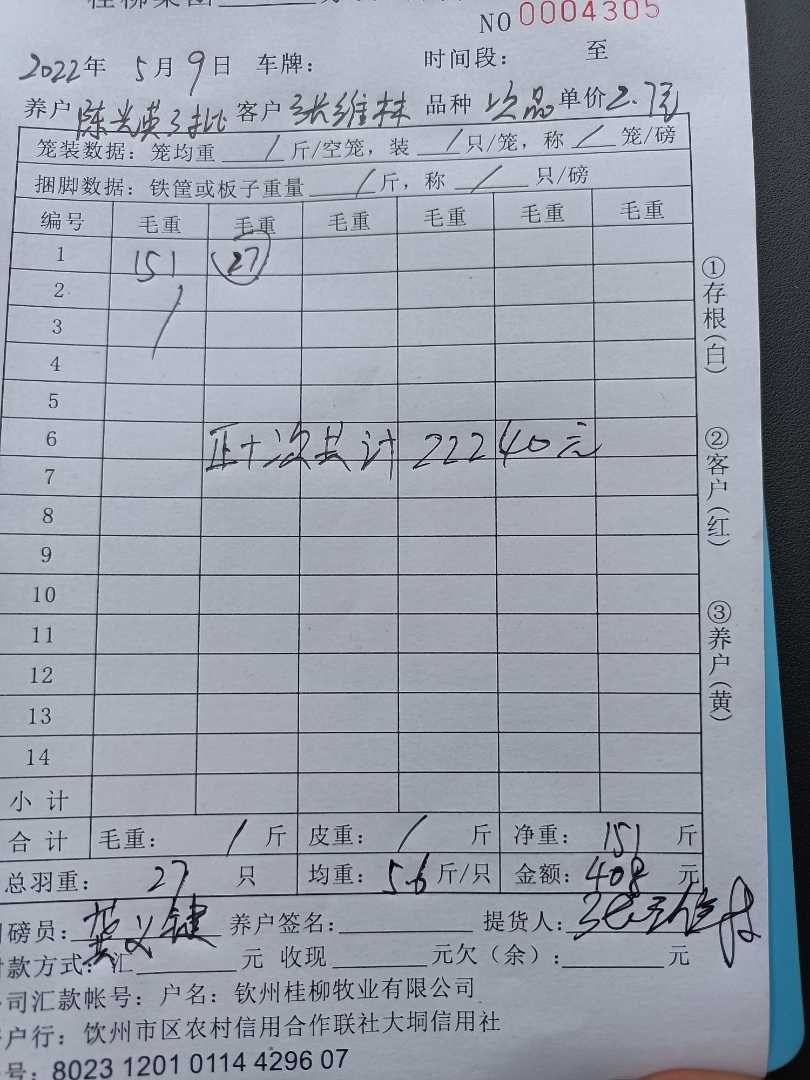 桂柳集团
NO 0004305
2022年 5月9日 车牌： 时间段： 至
养户 陈光英3批 客户 张维林 品种 次品 单价2.7元
笼装数据：笼均重 / 斤/空笼，装 / 只/笼，称 / 笼/磅
捆脚数据：铁筐或板子重量 / 斤，称 / 只/磅
编号 毛重 毛重 毛重 毛重 毛重 毛重
1 151 27
2 /
3
4
5
6
正+次共计 22240元
7
8
9
10
11
12
13
14
小计
合计 毛重： / 斤 皮重： / 斤 净重： 151 斤
总羽重： 27 只 均重：5.6斤/只 金额：408 元
磅员： 养户签名： 提货人：
款方式：汇 元 收现 元欠（余）： 元
司汇款帐号：户名：钦州桂柳牧业有限公司
户行：钦州市区农村信用合作联社大垌信用社
号：8023 1201 0114 4296 07
①存根(白)
②客户(红)
③养户(黄)